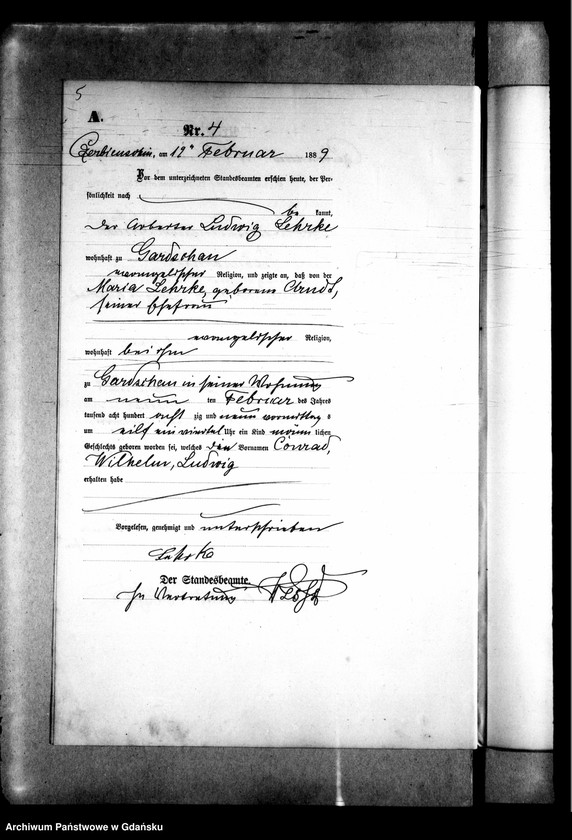 5
A.
Nr. 4
Czerbienschin, am 12ⁿ Februar 1889
Vor dem unterzeichneten Standesbeamten erschien heute, der Per-
sönlichkeit nach
be kannt,
der Arbeiter Ludwig Lehrke
wohnhaft zu Gardschau
evangelischer Religion, und zeigte an, daß von der
Maria Lehrke, geborene Arndt,
seiner Ehefrau
evangelischer Religion,
wohnhaft bei ihm
zu Gardschau in seiner Wohnung
am neun ten Februar des Jahres
tausend acht hundert acht zig und neun vormittag s
um eilf ein viertel Uhr ein Kind männ lichen
Geschlechts geboren worden sei, welches den Vornamen Conrad,
Wilhelm, Ludwig
erhalten habe
Vorgelesen, genehmigt und unterschrieben
Lehrke
Der Standesbeamte.
In Vertretung
Archiwum Państwowe w Gdańsku